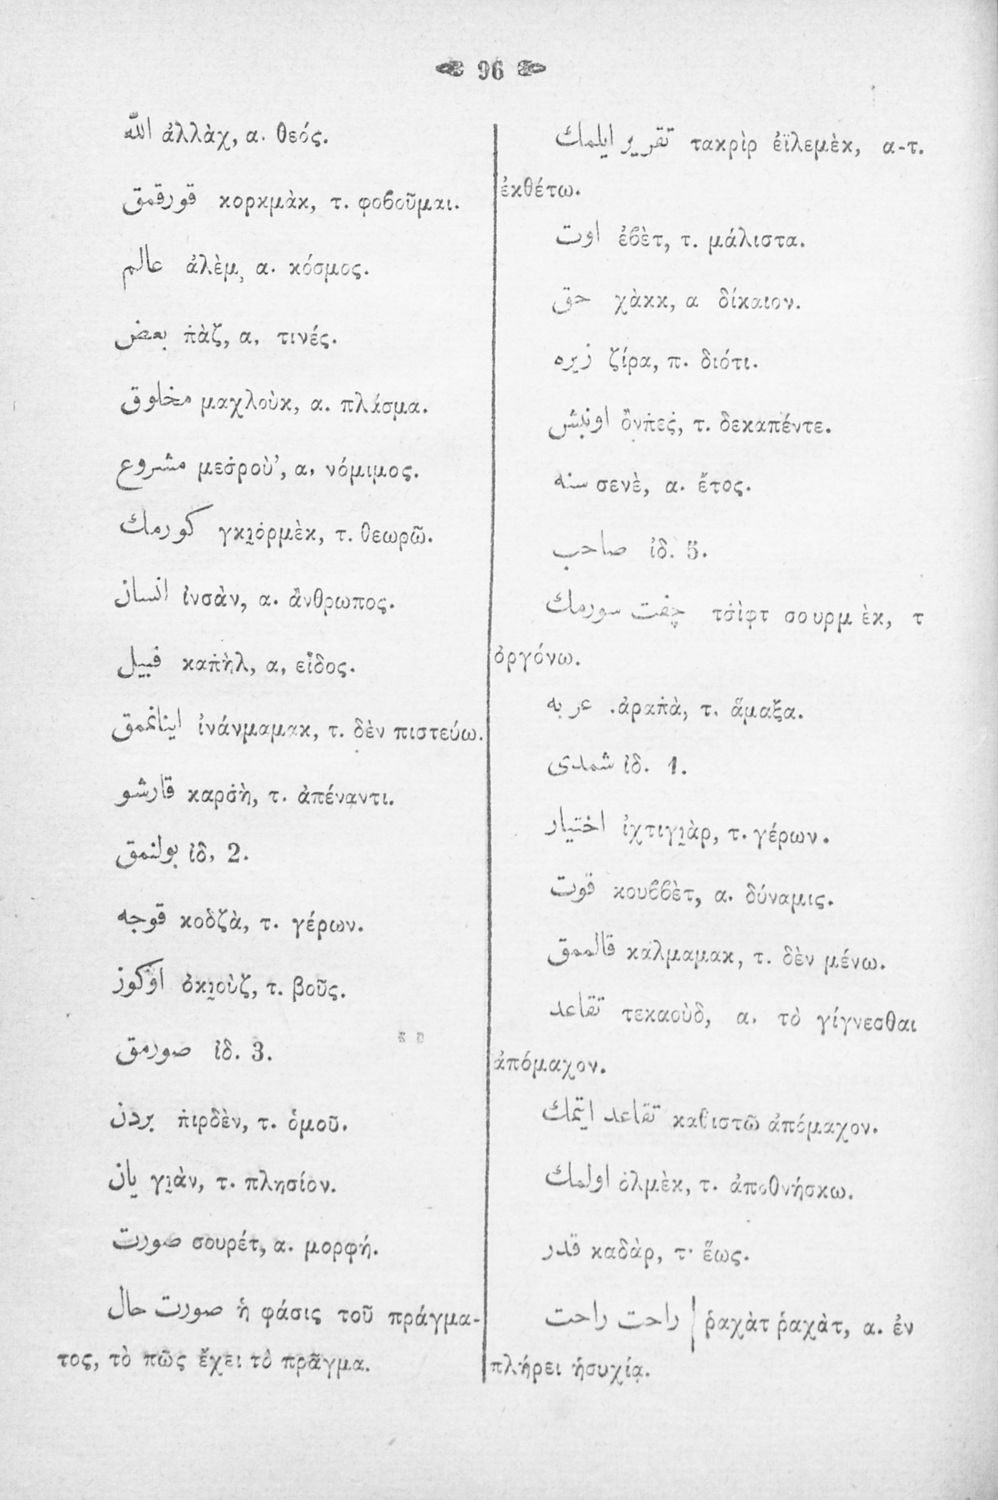 96
الله ἀλλὰχ, α. θεός.
قورقمق κορκμὰκ, τ. φοβοῦμαι.
عالم ἀλὲμ, α. κόσμος.
بعض π̇ὰζ, α. τινές.
مخلوق μαχλοὺκ, α. πλάσμα.
مشروع μεσ̇ροὺ', α. νόμιμος.
كورمك γκι̯ὀρμὲκ, τ. θεωρῶ.
انسان ἰνσὰν, α. ἄνθρωπος.
قبيل καπ̇ὴλ, α, εἶδος.
اينانمق ἰνάνμαμακ, τ. δὲν πιστεύω.
قارشو καρσ̇ὴ, τ. ἀπέναντι.
بولنمق ἰδ. 2.
قوجه κοδζὰ, τ. γέρων.
اوكوز ὀκι̯οὺζ, τ. βοῦς.
صورمق ἰδ. 3.
بردن π̇ιρδὲν, τ. ὁμοῦ.
يان γι̯ὰν, τ. πλησίον.
صورت σουρέτ, α. μορφή.
صورت حال ἡ φάσις τοῦ πράγμα-
τος, τὸ πῶς ἔχει τὸ πρᾶγμα.
تقرير ايلمك τακρὶρ ἐϊλεμὲκ, α-τ.
ἐκθέτω.
اوت ἐβὲτ, τ. μάλιστα.
حق χὰκκ, α δίκαιον.
زيره ζίρα, π. διότι.
اونبش ὄνπ̇εσ̇, τ. δεκαπέντε.
سنه σενὲ, α. ἔτος.
صاحب ἰδ. 5.
چفت سورمك τσ̇ὶφτ σουρμὲκ, τ
ὀργόνω.
عربه ἀραπ̇ὰ, τ. ἅμαξα.
شمدى ἰδ. 1.
اختيار ἰχτιγι̯ὰρ, τ. γέρων.
قوت κουββὲτ, α. δύναμις.
قالممق κάλμαμακ, τ. δὲν μένω.
تقاعد τεκαοὺδ, α. τὸ γίγνεσθαι
ἀπόμαχον.
تقاعد ايتمك καθιστῶ ἀπόμαχον.
اولمك ὀλμὲκ, τ. ἀποθνήσκω.
قدر καδὰρ, τ· ἕως.
راحت راحت ῥαχὰτ ῥαχὰτ, α. ἐν
πλήρει ἡσυχίᾳ.